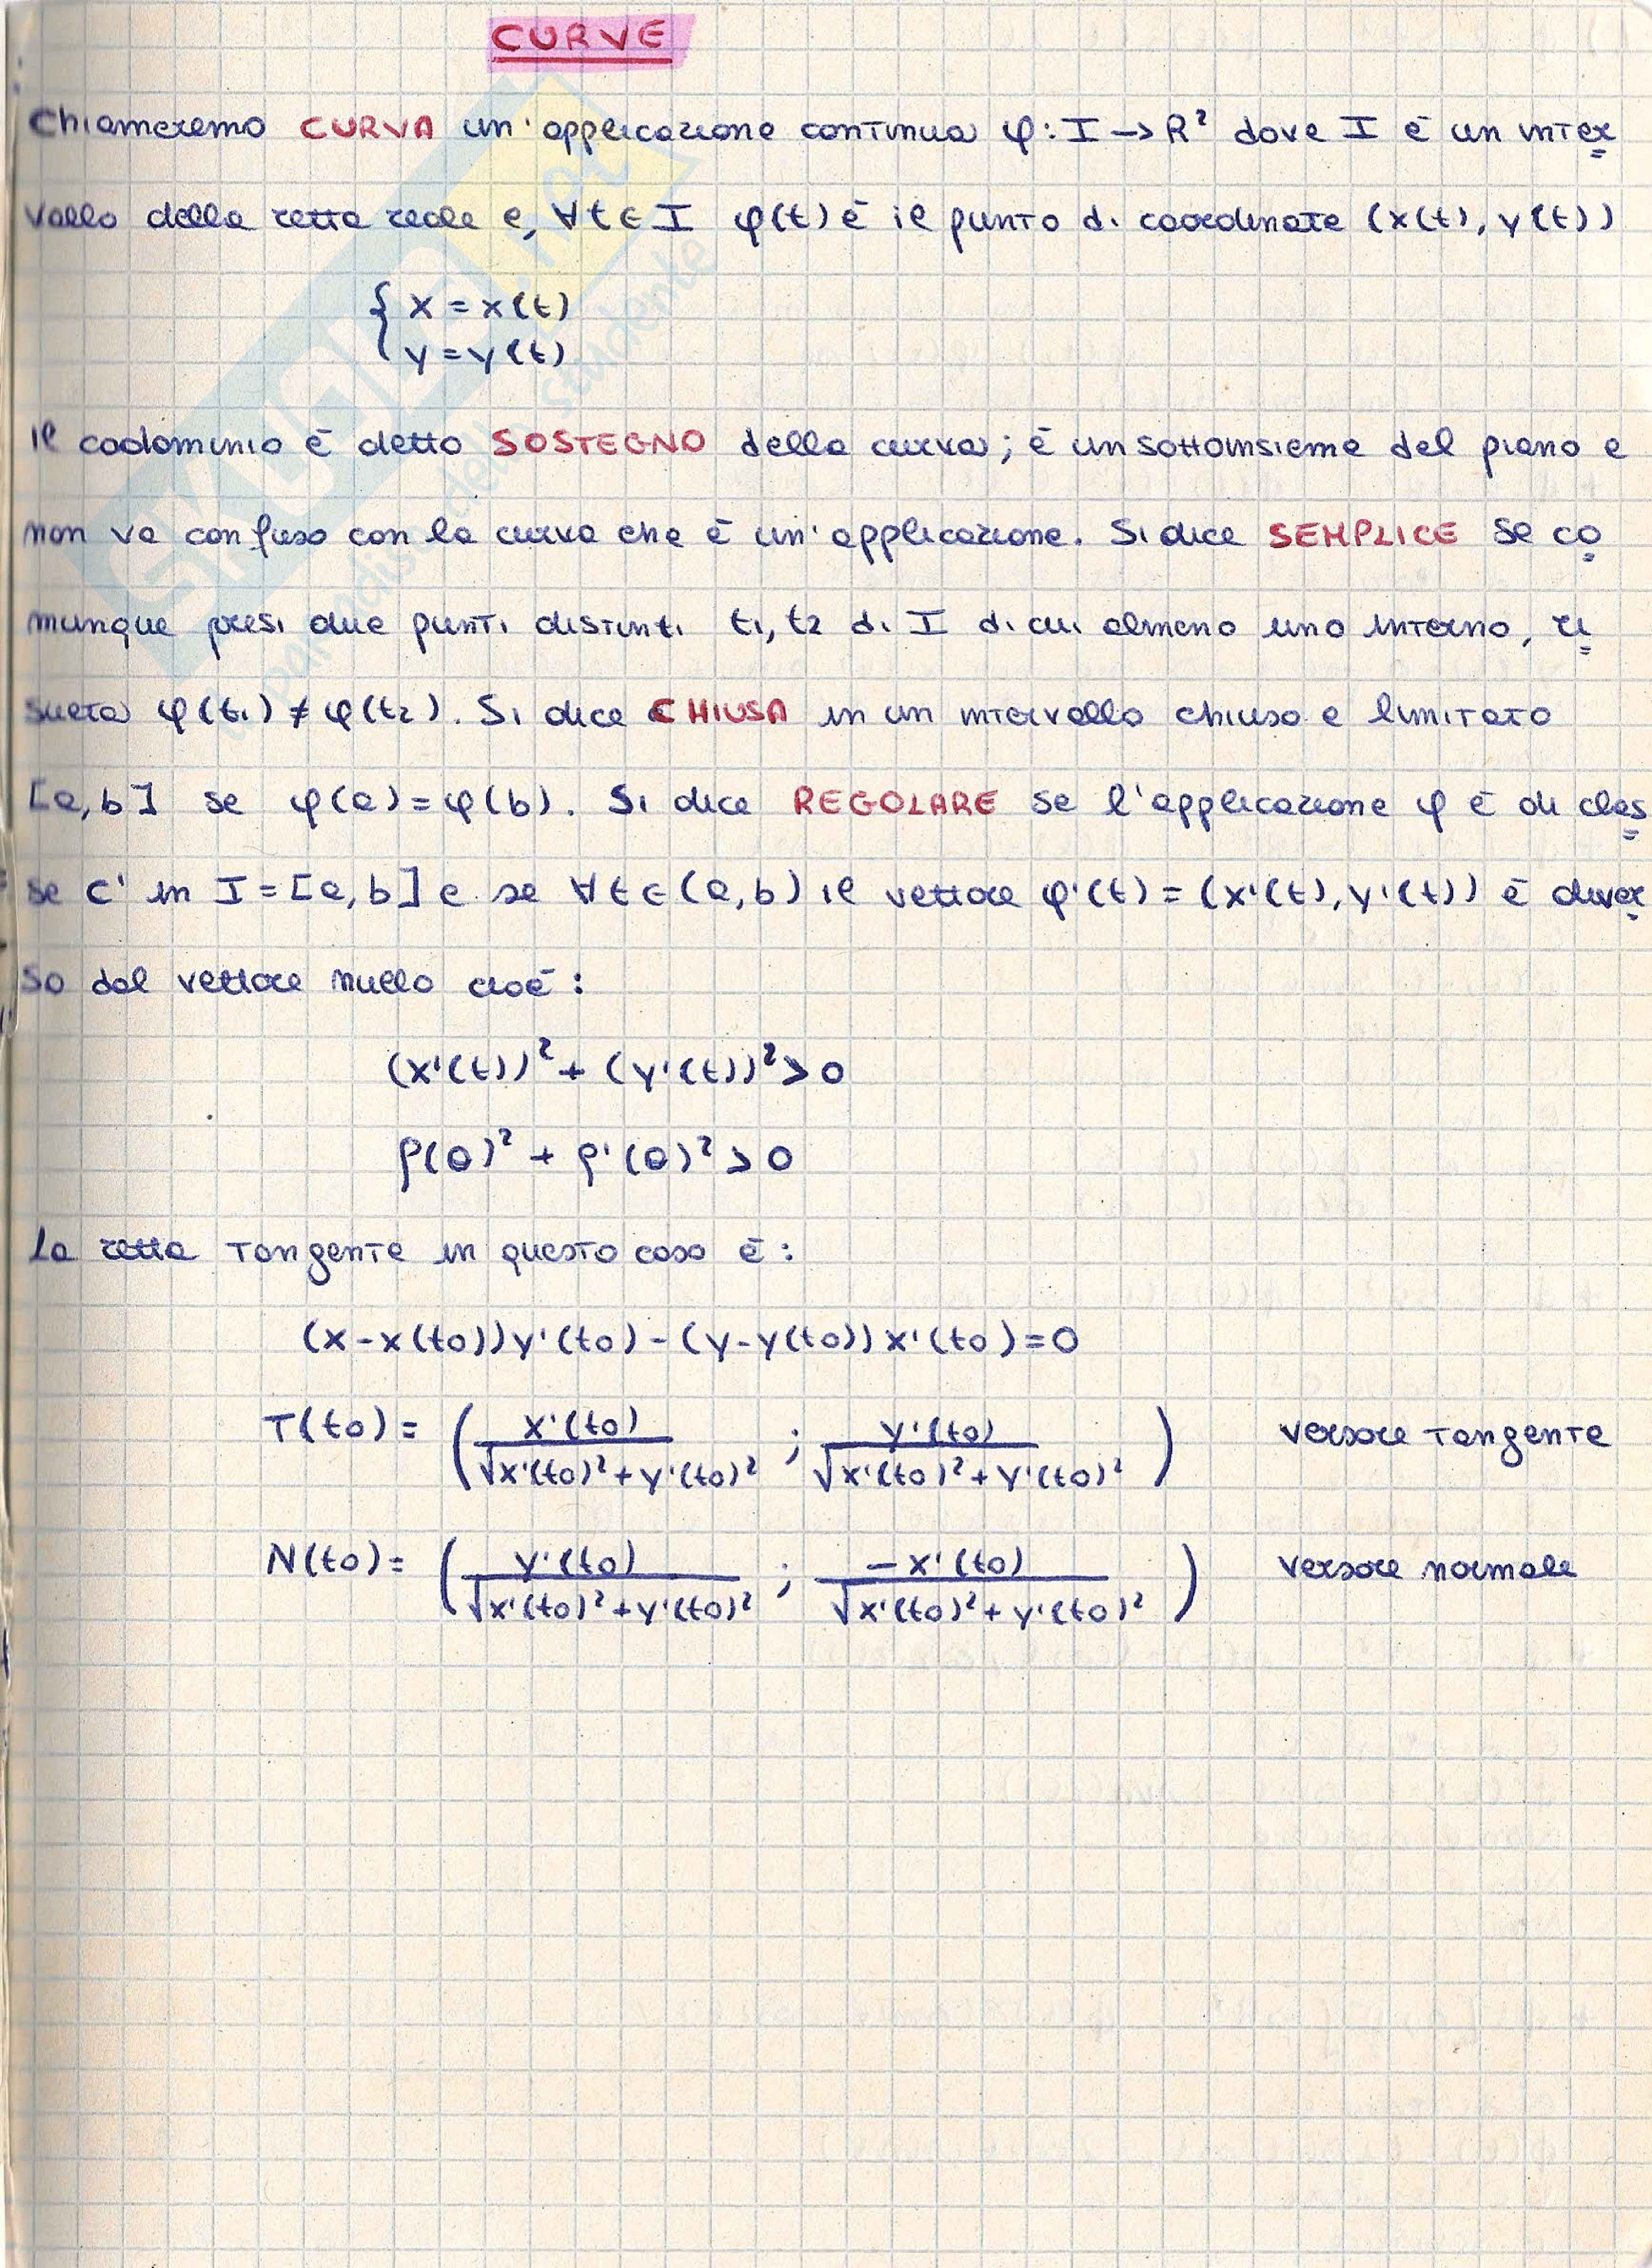 CURVE
Chiameremo CURVA un'applicazione continua φ: I → R² dove I è un inter
vallo della retta reale e, ∀t ∈ I φ(t) è il punto di coordinate (x(t), y(t))
{ x = x(t)
y = y(t)
il codominio è detto SOSTEGNO della curva; è un sottoinsieme del piano e
non va confuso con la curva che è un'applicazione. Si dice SEMPLICE se co
munque presi due punti distinti t1, t2 di I di cui almeno uno interno, ri
sulta φ(t1) ≠ φ(t2). Si dice CHIUSA in un intervallo chiuso e limitato
[a, b] se φ(a) = φ(b). Si dice REGOLARE se l'applicazione φ è di clas
se C¹ in I = [a, b] e se ∀t ∈ (a, b) il vettore φ'(t) = (x'(t), y'(t)) è diver
so dal vettore nullo cioè:
(x'(t))² + (y'(t))² > 0
ρ(θ)² + ρ'(θ)² > 0
La retta tangente in questo caso è:
(x - x(t0)) y'(t0) - (y - y(t0)) x'(t0) = 0
T(t0) = ( x'(t0) / √x'(t0)² + y'(t0)² ; y'(t0) / √x'(t0)² + y'(t0)² ) versore tangente
N(t0) = ( y'(t0) / √x'(t0)² + y'(t0)² ; -x'(t0) / √x'(t0)² + y'(t0)² ) versore normale